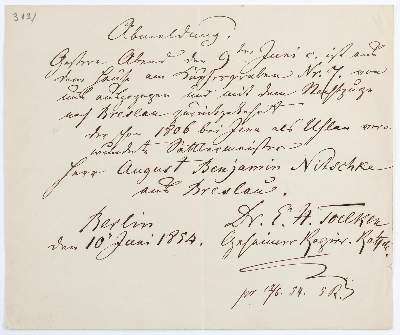 313/
Abmeldung.
Gestern Abend den 9ten Juni c. ist aus
dem Hause am Kupfergraben Nr. 7. von
uns ausgezogen und mit dem Nachtzuge
nach Breslau zurückgekehrt
der hon 1806 bei Jena als Uhlan ver-
wundete Sattlermeister
Herr August Benjamin Nitschke
aus Breslau.
Berlin
den 10 Juni 1854.
Dr. E. H. Toelken
Geheimer Regier. Rath.
pr 12/6. 54.